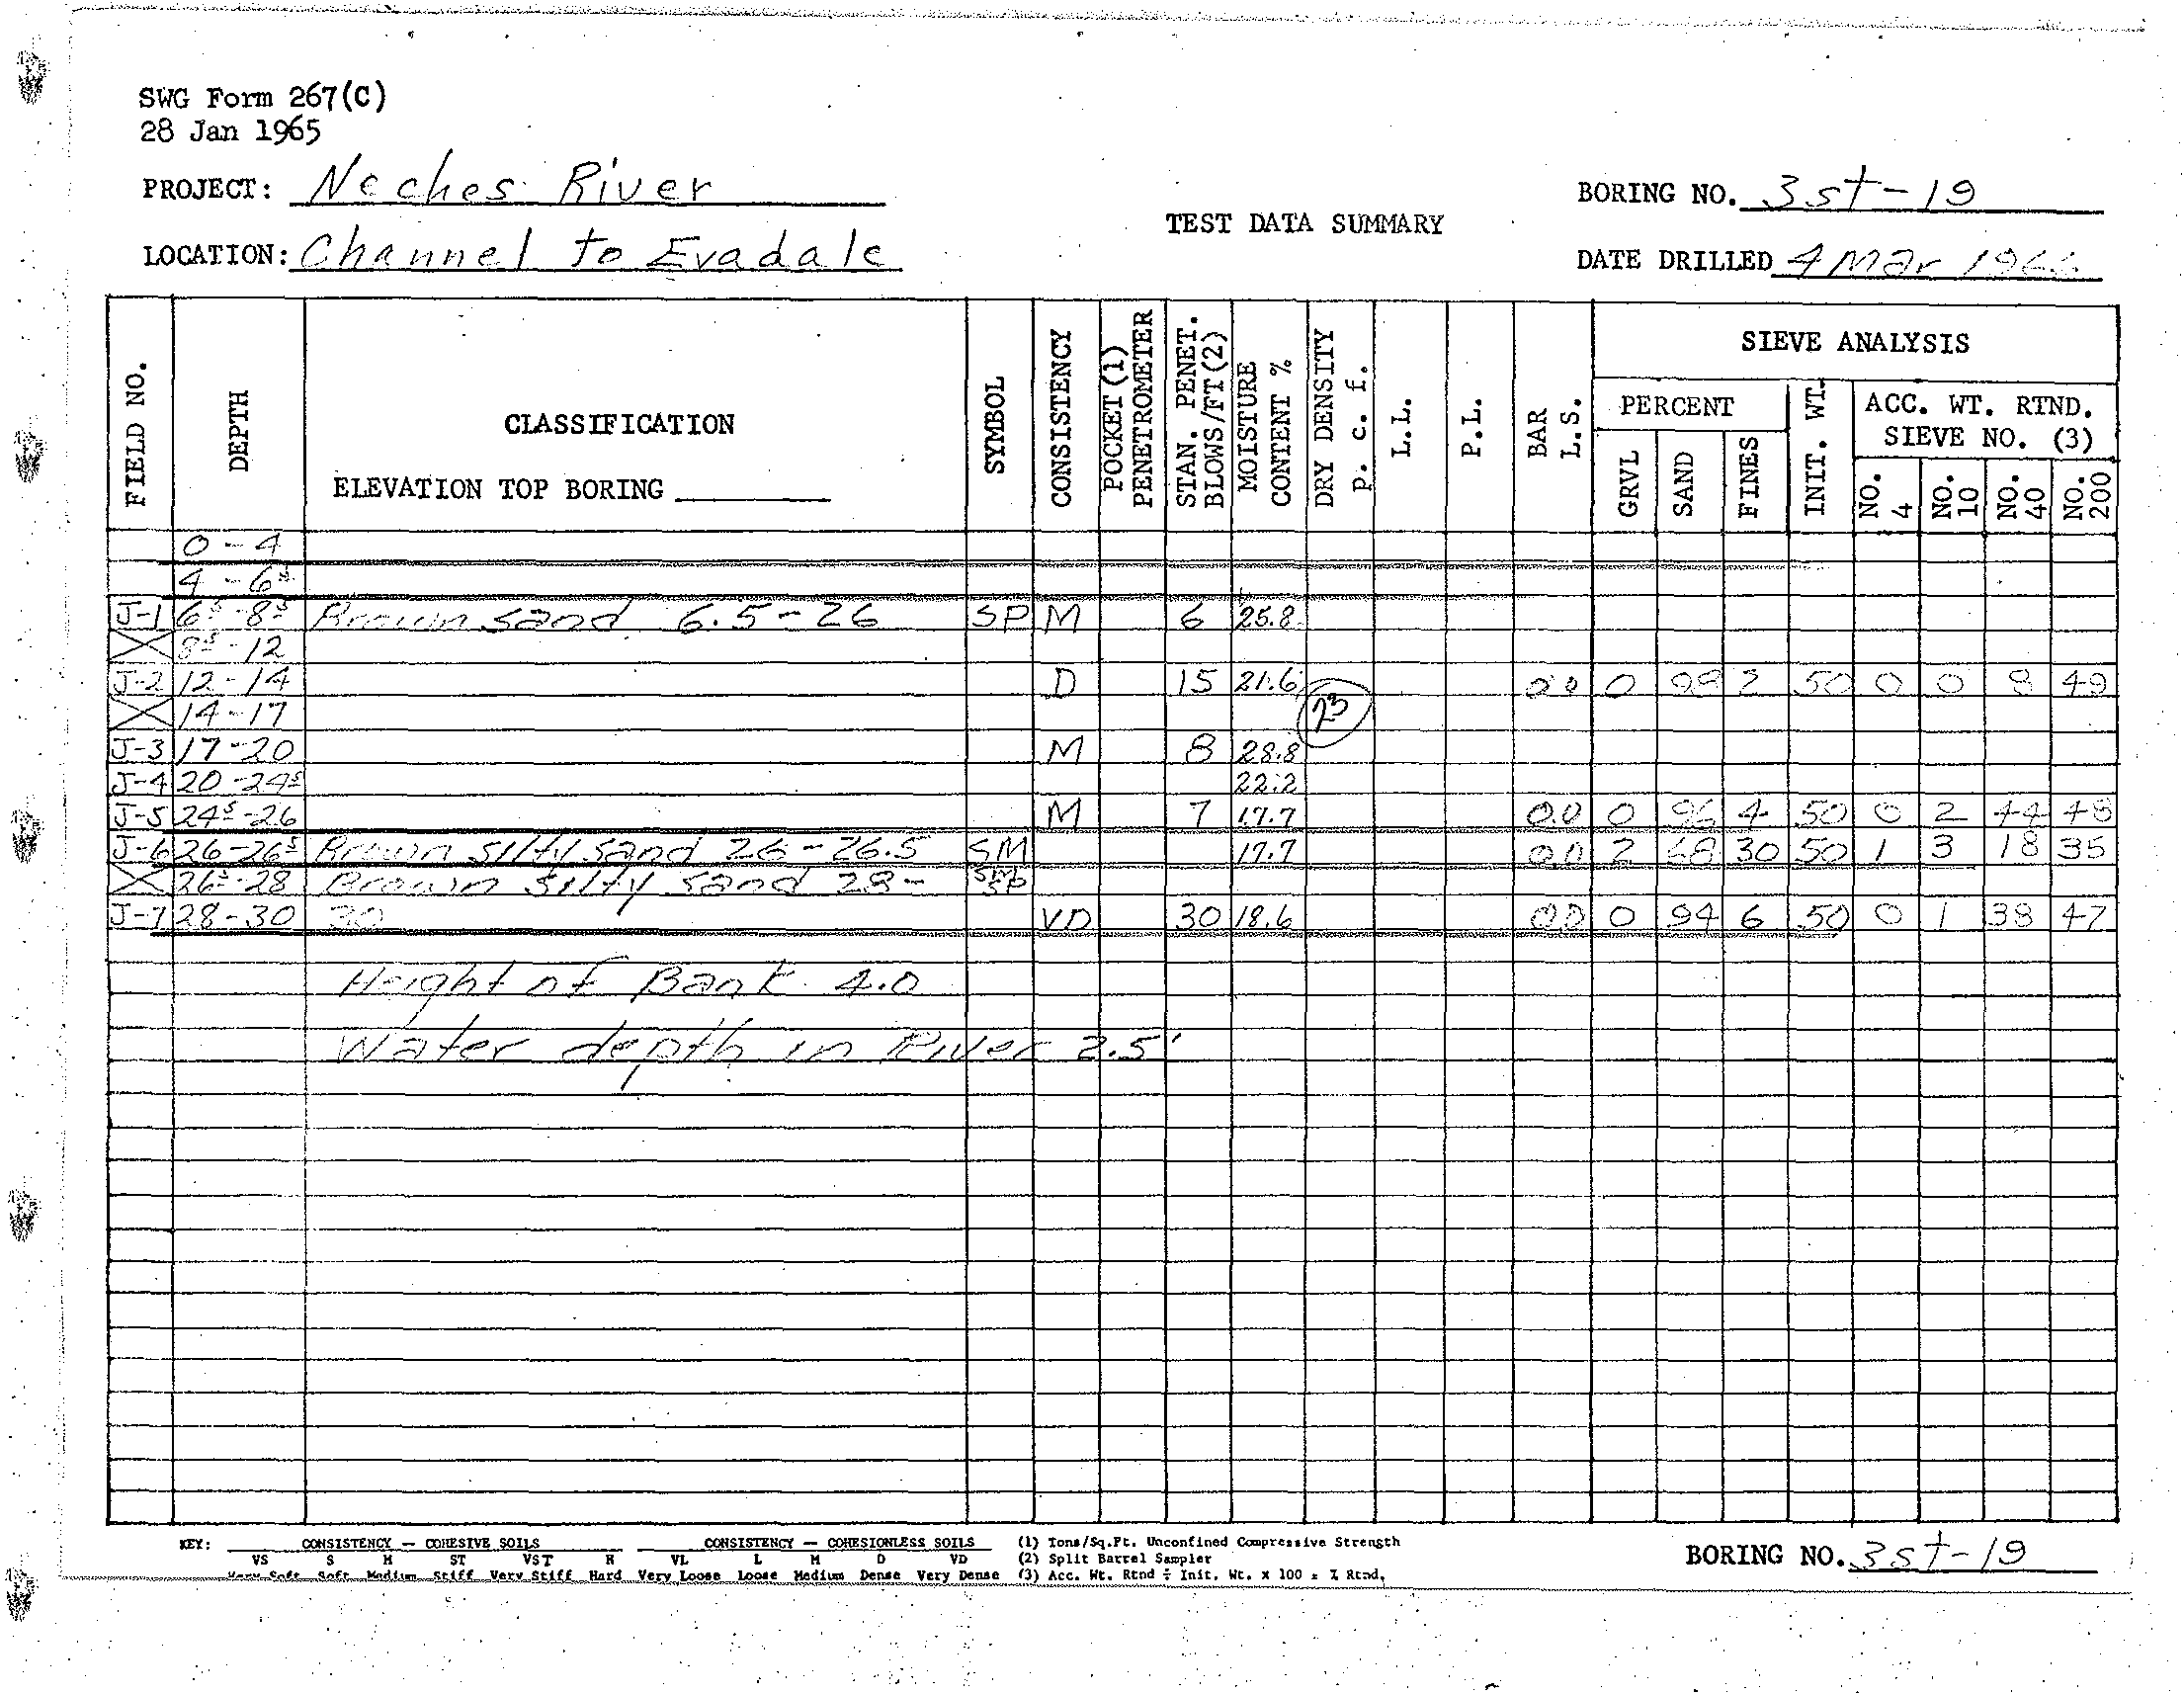 SWG Form 267(C)
28 Jan 1965
PROJECT: Neches River
BORING NO. 3st-19
TEST DATA SUMMARY
LOCATION: Channel to Evadale
DATE DRILLED 4 Mar 1966
FIELD NO.
DEPTH
CLASSIFICATION
ELEVATION TOP BORING
SYMBOL
CONSISTENCY
POCKET (1) PENETROMETER
STAN. PENET. BLOWS/FT (2)
MOISTURE CONTENT %
DRY DENSITY P. c. f.
L.L.
P.L.
BAR L.S.
SIEVE ANALYSIS
PERCENT
GRVL
SAND
FINES
INIT. WT.
ACC. WT. RTND.
SIEVE NO. (3)
NO. 4
NO. 10
NO. 40
NO. 200
0 - 4
4 - 6⁵
J-1 6⁵ - 8⁵ Brown sand 6.5-26 SP M 6 25.8
8⁵ - 12
J-2 12 - 14 D 15 21.6 0.0 0 98 2 50 0 0 8 49
14-17 23
J-3 17-20 M 8 28.8
J-4 20-24⁵ 22.2
J-5 24⁵-26 M 7 17.7 0.0 0 96 4 50 0 2 44 48
J-6 26-26⁵ Brown silty sand 26-26.5 SM 17.7 0.0 2 68 30 50 1 3 18 35
26⁵-28 Brown silty sand 28- SM SP
J-7 28-30 30 VD 30 18.6 0.0 0 94 6 50 0 1 38 47
Height of Bank 4.0
Water depth in River 2.5'
KEY: CONSISTENCY — COHESIVE SOILS CONSISTENCY — COHESIONLESS SOILS (1) Tons/Sq.Ft. Unconfined Compressive Strength
VS S M ST VST H VL L M D VD (2) Split Barrel Sampler
Very Soft Soft Medium Stiff Very Stiff Hard Very Loose Loose Medium Dense Very Dense (3) Acc. Wt. Rtnd ÷ Init. Wt. x 100 = % Rtnd.
BORING NO. 3st-19